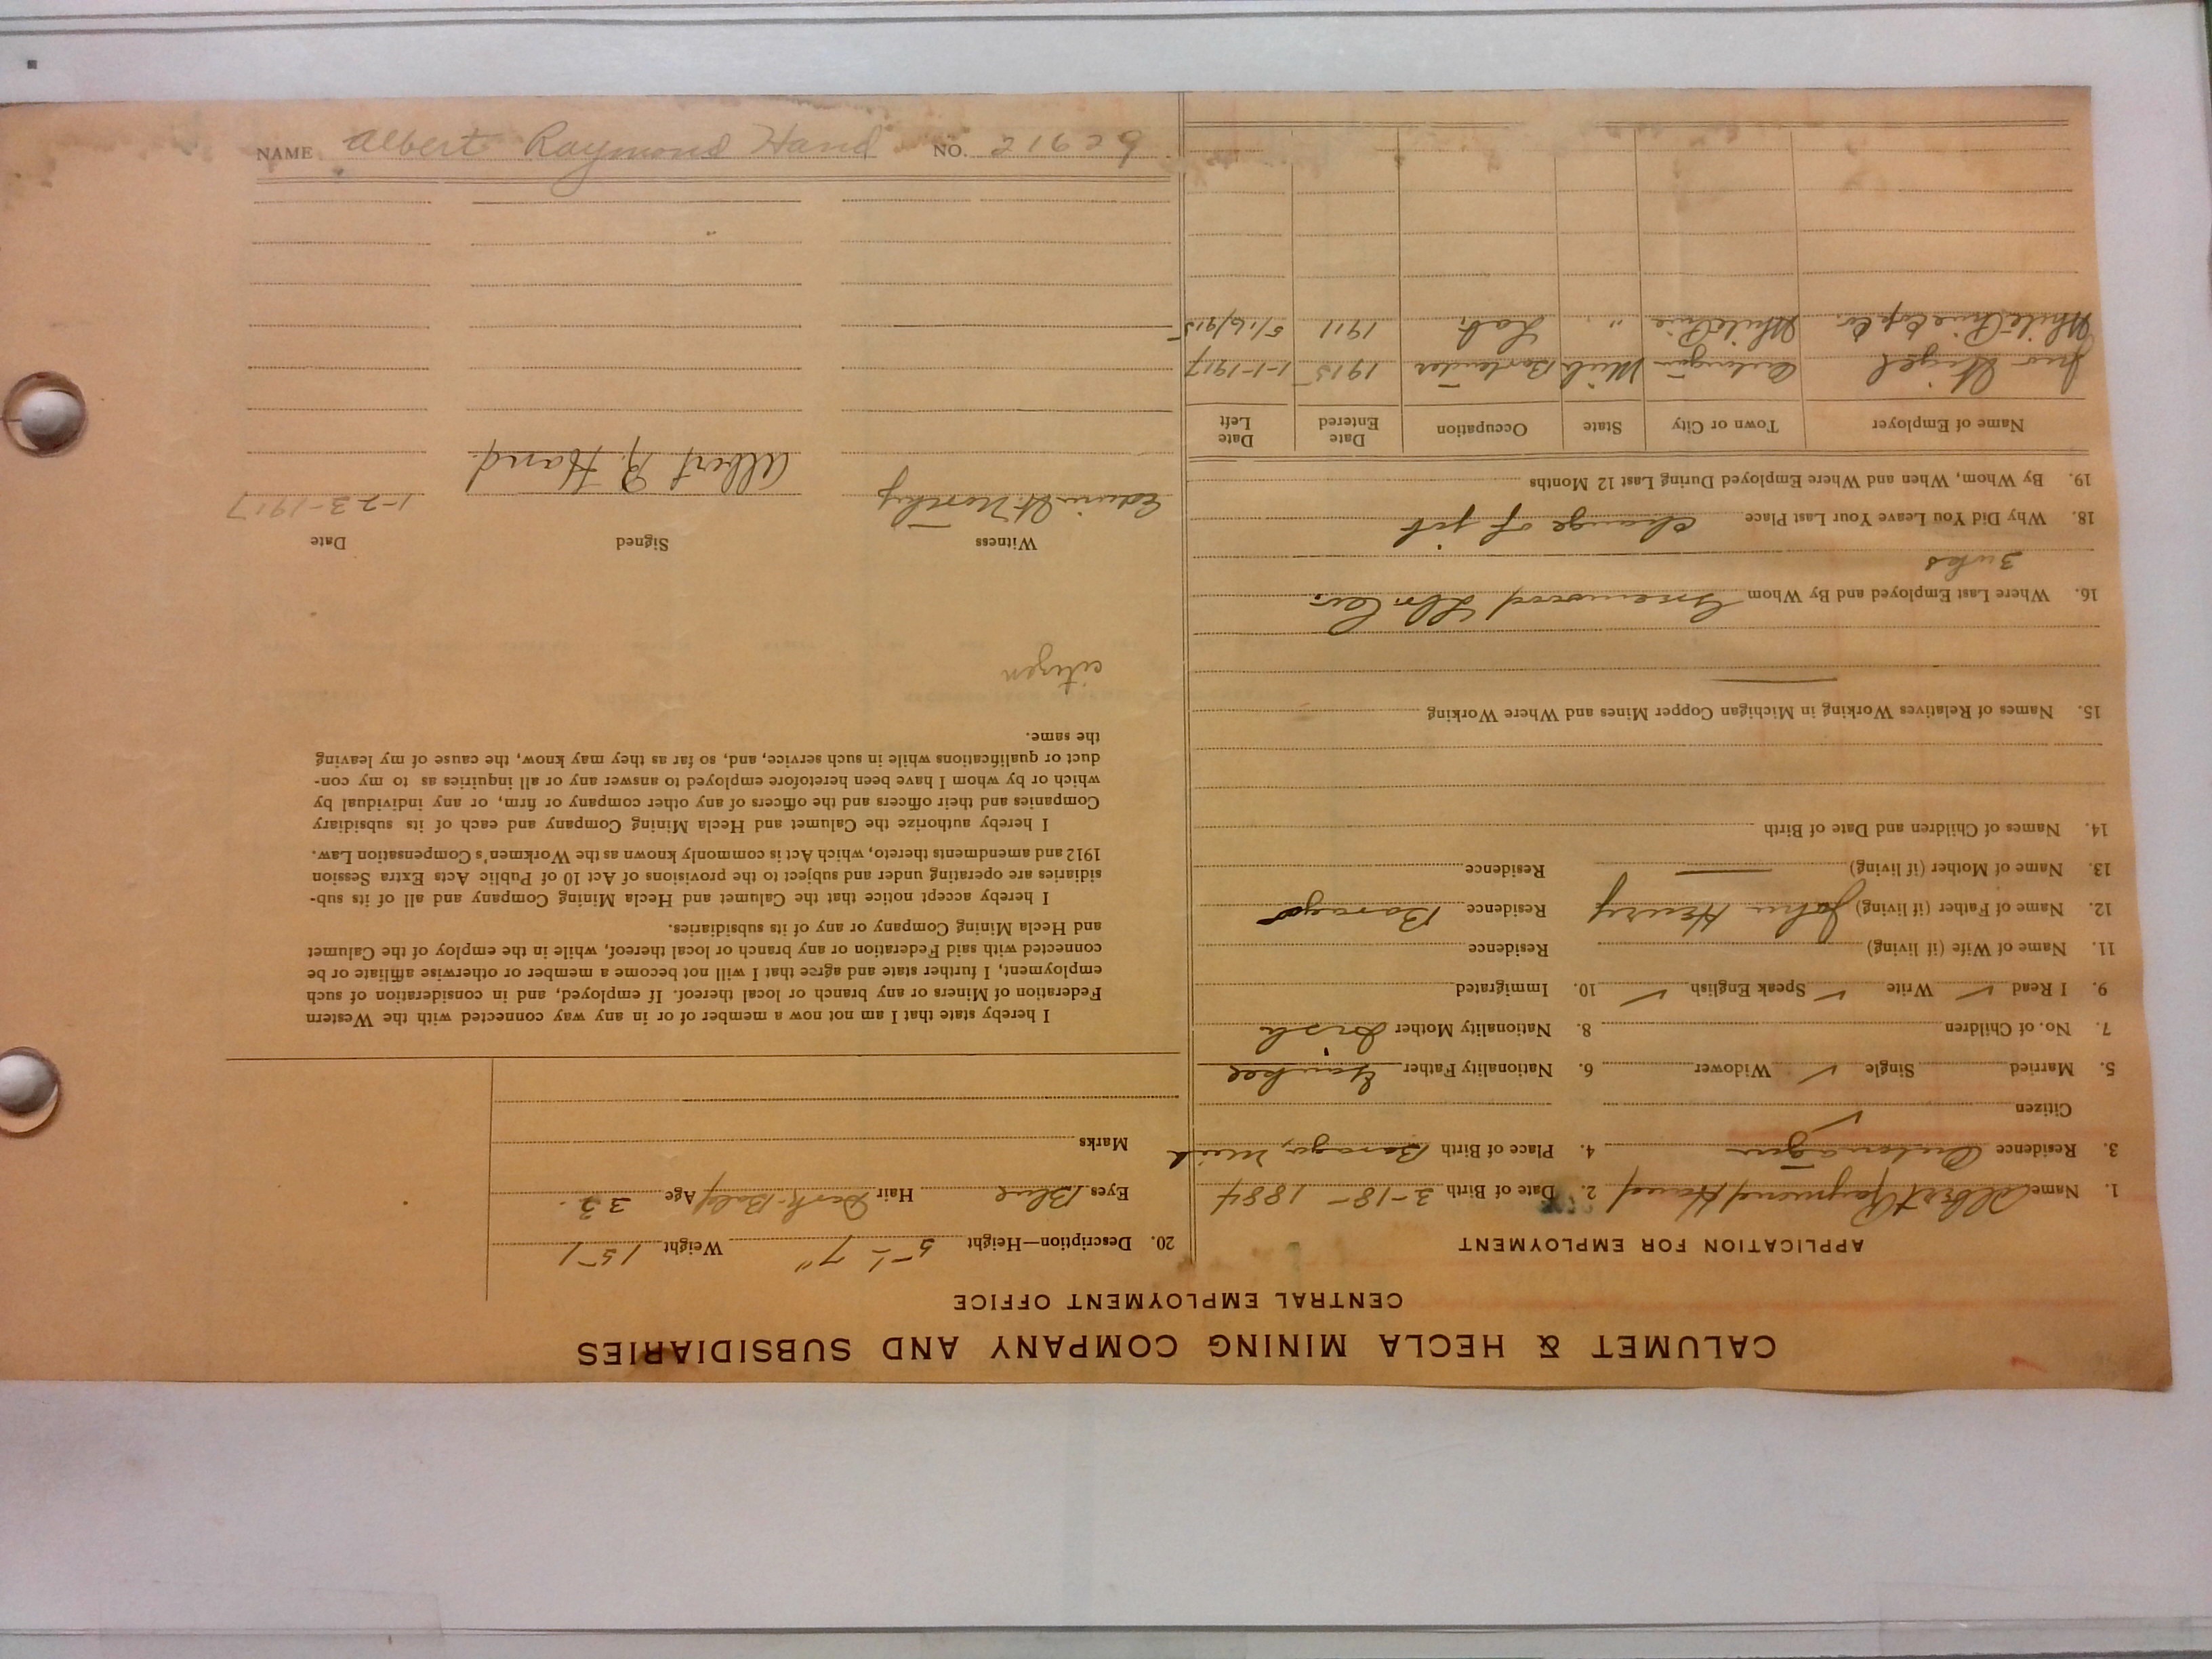 CALUMET & HECLA MINING COMPANY AND SUBSIDIARIES
CENTRAL EMPLOYMENT OFFICE
APPLICATION FOR EMPLOYMENT
1. Name Albert Raymond Hand 2. Date of Birth 3-18-1884
3. Residence Ontonagon 4. Place of Birth Baraga, Mich
Citizen ✓
5. Married Single ✓ Widower 6. Nationality Father Yankee
7. No. of Children 8. Nationality Mother Irish
9. I Read ✓ Write ✓ Speak English ✓ 10. Immigrated
11. Name of Wife (if living) Residence
12. Name of Father (if living) John Henry Residence Baraga
13. Name of Mother (if living) — Residence
14. Names of Children and Date of Birth
15. Names of Relatives Working in Michigan Copper Mines and Where Working
—
16. Where Last Employed and By Whom Greenwood Lbr Co.
3 wks
18. Why Did You Leave Your Last Place change of job
19. By Whom, When and Where Employed During Last 12 Months
Name of Employer Town or City State Occupation Date Entered Date Left
Jno Ontonagon Mich Bartender 1915 1-1-1917
White Pine Copper White Pine " Lab. 1911 5/16/915
20. Description—Height 5' 7" Weight 151
Eyes Blue Hair Dark-Bald Age 32
Marks
I hereby state that I am not now a member of or in any way connected with the Western
Federation of Miners or any branch or local thereof. If employed, and in consideration of such
employment, I further state and agree that I will not become a member or otherwise affiliate or be
connected with said Federation or any branch or local thereof, while in the employ of the Calumet
and Hecla Mining Company or any of its subsidiaries.
I hereby accept notice that the Calumet and Hecla Mining Company and all of its sub-
sidiaries are operating under and subject to the provisions of Act 10 of Public Acts Extra Session
1912 and amendments thereto, which Act is commonly known as the Workmen's Compensation Law.
I hereby authorize the Calumet and Hecla Mining Company and each of its subsidiary
Companies and their officers and the officers of any other company or firm, or any individual by
which or by whom I have been heretofore employed to answer any or all inquiries as to my con-
duct or qualifications while in such service, and, so far as they may know, the cause of my leaving
the same.
citizen
Witness Signed Date
Edwin 1-23-1917
Albert R. Hand
NAME Albert Raymond Hand NO. 21629